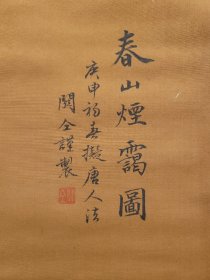 春山煙靄圖
庚申初春擬唐人法
關仝謹製